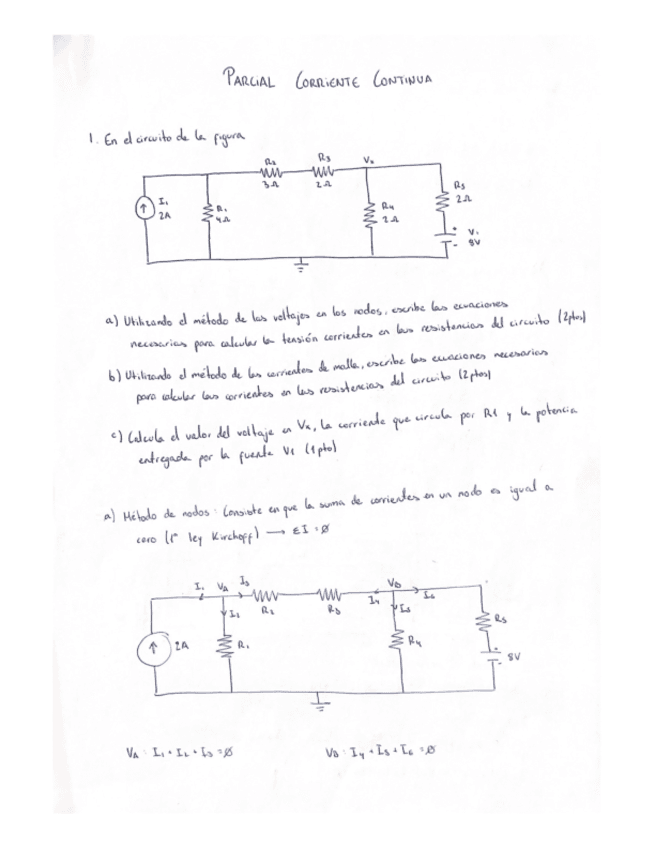 PARCIAL CORRIENTE CONTINUA
1. En el circuito de la figura
R2 R3 Vx
3Ω 2Ω
I1
2A
R1
4Ω
R4
2Ω
R5
2Ω
+ V1
- 8V
a) Utilizando el método de los voltajes en los nodos, escribe las ecuaciones
necesarias para calcular la tensión corrientes en las resistencias del circuito (2ptos)
b) Utilizando el método de las corrientes de malla, escribe las ecuaciones necesarias
para calcular las corrientes en las resistencias del circuito (2ptos)
c) Calcula el valor del voltaje en Vx, la corriente que circula por R1 y la potencia
entregada por la fuente V1 (1pto)
a) Método de nodos: Consiste en que la suma de corrientes en un nodo es igual a
cero (1ª ley Kirchoff) → ΣI = Ø
I1 VA I3 VB
I2 R2 R3 I4 I5 I6
2A R1 R4 R5
+
- 8V
VA: I1 + I2 + I3 = Ø VB: I4 + I5 + I6 = Ø